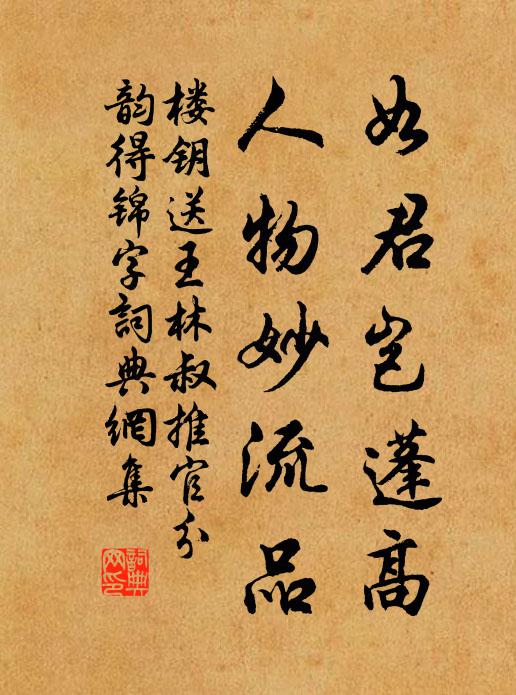 如君岂蓬高
人物妙流品
楼钥送王林叔推官分
韵得锦字詞典網集
詞典网印